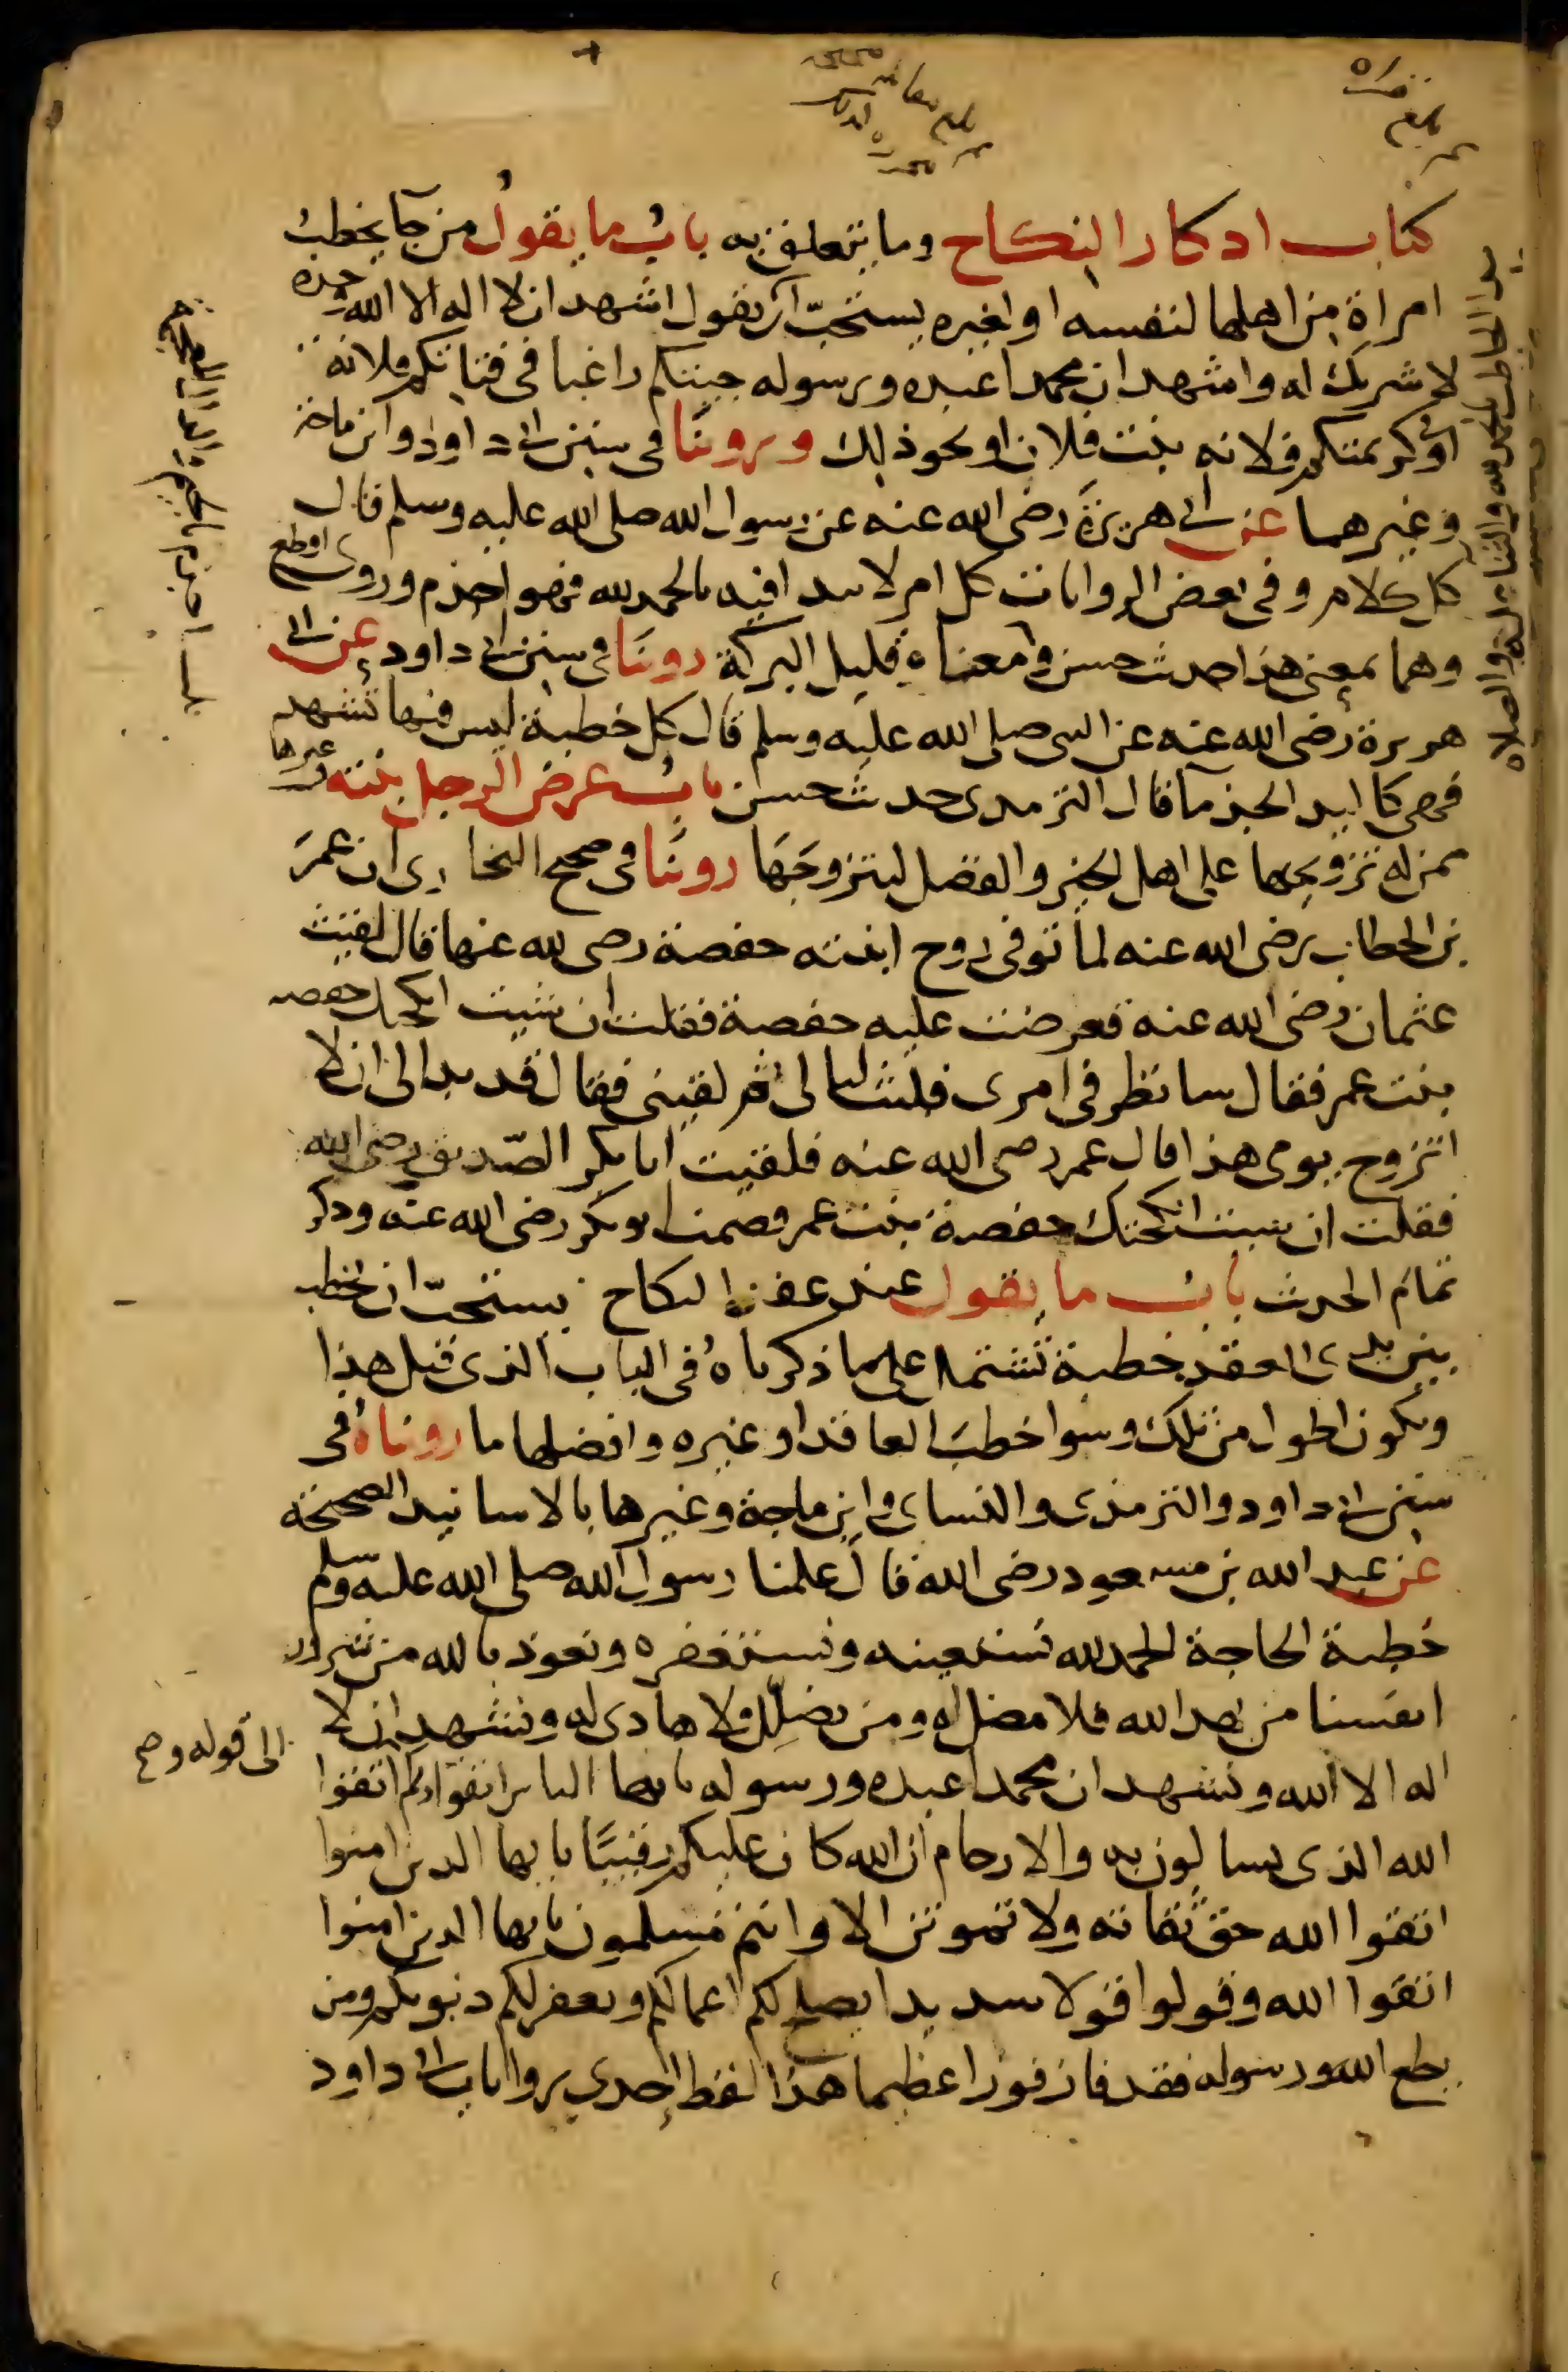 كتاب اذكار النكاح وما يتعلق به باب ما يقول من جآ يخطب
امراة من اهلها لنفسه او لغيره يستحب ان يقول اشهد ان لا اله الا الله وحده
لا شريك له واشهد ان محمدا عبده ورسوله جيتكم راغبا في فتاتكم فلانة
او كريمتكم فلانه بنت فلان او نحو ذلك وروينا في سنن ابي داود وابن ماجة
وغيرهما عن ابي هريرة رضي الله عنه عن رسول الله صلى الله عليه وسلم قال
كل كلام وفي بعض الروايات كل امر لا يبدا فيه بالحمد لله فهو اجذم وروي اقطع
وهما بمعنى هذا حديث حسن ومعناه قليل البركة روينا في سنن ابي داود عن ابي
هريرة رضي الله عنه عن النبي صلى الله عليه وسلم قال كل خطبة ليس فيها تشهد
فهي كاليد الجذمآ قال الترمدى حديث حسن باب عرض الرجل بنته وغيرها
ممن له تزويجها على اهل الخير والفضل ليتزوجها روينا في صحيح البخاري ان عمر
بن الخطاب رضي الله عنه لما توفي زوج ابنته حفصة رضي الله عنها قال لقيت
عثمان رضي الله عنه فعرضت عليه حفصة فقلت ان شيت انكحتك حفصه
بنت عمر فقال سانظر في امري فلبثت ليالي ثم لقيني فقال قد بدا لي ان لا
اتزوج يومي هذا قال عمر رضي الله عنه فلقيت ابا بكر الصديق رضي الله
فقلت ان شيت انكحتك حفصة بنت عمر فصمت ابو بكر رضي الله عنه وذكر
تمام الحديث باب ما يقول عند عقد النكاح يستحب ان يخطب
بين يدي العقد خطبة تشتمل على ما ذكرناه في الباب الذي قبل هذا
وتكون اطول من تلك وسوا خطب العاقد او غيره وافضلها ما رويناه في
سنن ابي داود والترمذي والنساي وابن ماجة وغيرها بالاسانيد الصحيحة
عن عبد الله بن مسعود رضي الله قال علمنا رسول الله صلى الله عليه وسلم
خطبة الحاجة الحمد لله نستعينه ونستغفره ونعوذ بالله من شرور
انفسنا من يهد الله فلا مضل له ومن يضلل ولا هادي له ونشهد ان لا
اله الا الله ونشهد ان محمدا عبده ورسوله يايها الناس اتقوا ربكم اتقوا
الى قوله وصح
الله الذي تسالون به والارحام ان الله كان عليكم رقيبا يايها الذين امنوا
اتقوا الله حق تقاته ولا تموتن الا وانتم مسلمون يايها الذين امنوا
اتقوا الله وقولوا قولا سديدا يصلح لكم اعمالكم ويغفر لكم ذنوبكم ومن
يطع الله ورسوله فقد فاز فوزا عظيما هذا لفظ احدى روايات ابي داود